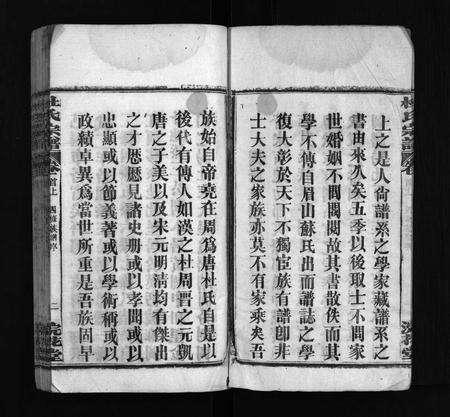 上之是人尙譜系之學家藏譜系之
書由來久矣五季以後取士不問家
世婚姻不問閥閱故其書散佚而其
學不傳自眉山蘇氏出而譜誌之學
復大彰於天下不獨宦族有譜卽非
士大夫之家族亦莫不有家乘矣吾
族始自帝堯在周爲唐杜氏自是以
後代有傳人如漢之杜周晋之元凱
唐之子美以及宋元明清均有傑出
之才歷歷見諸史册或以孝聞或以
忠顯或以節義著或以學術稱或以
政績卓異爲當世所重是吾族固早
杜氏宗譜 卷首上
二
浣花堂